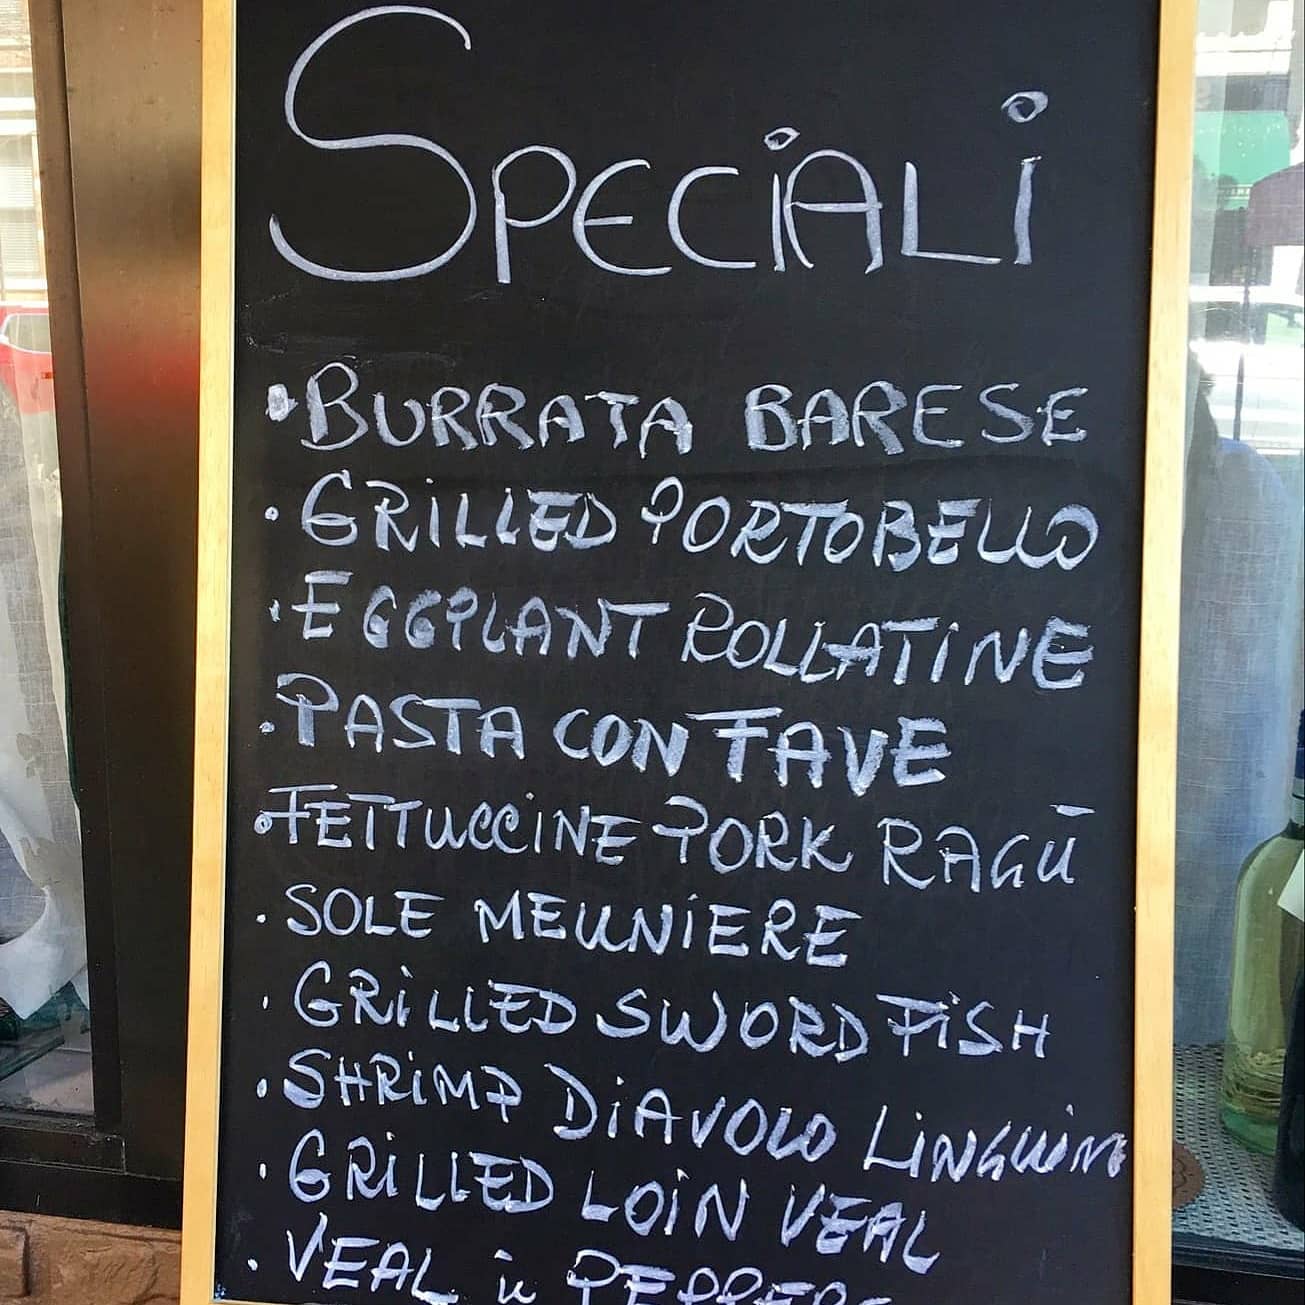 SPECIALI
• BURRATA BARESE
• GRILLED PORTOBELLO
• EGGPLANT ROLLATINE
• PASTA CON FAVE
• FETTUCCINE PORK RAGÚ
• SOLE MEUNIERE
• GRILLED SWORD FISH
• SHRIMP DIAVOLO LINGUINI
• GRILLED LOIN VEAL
• VEAL